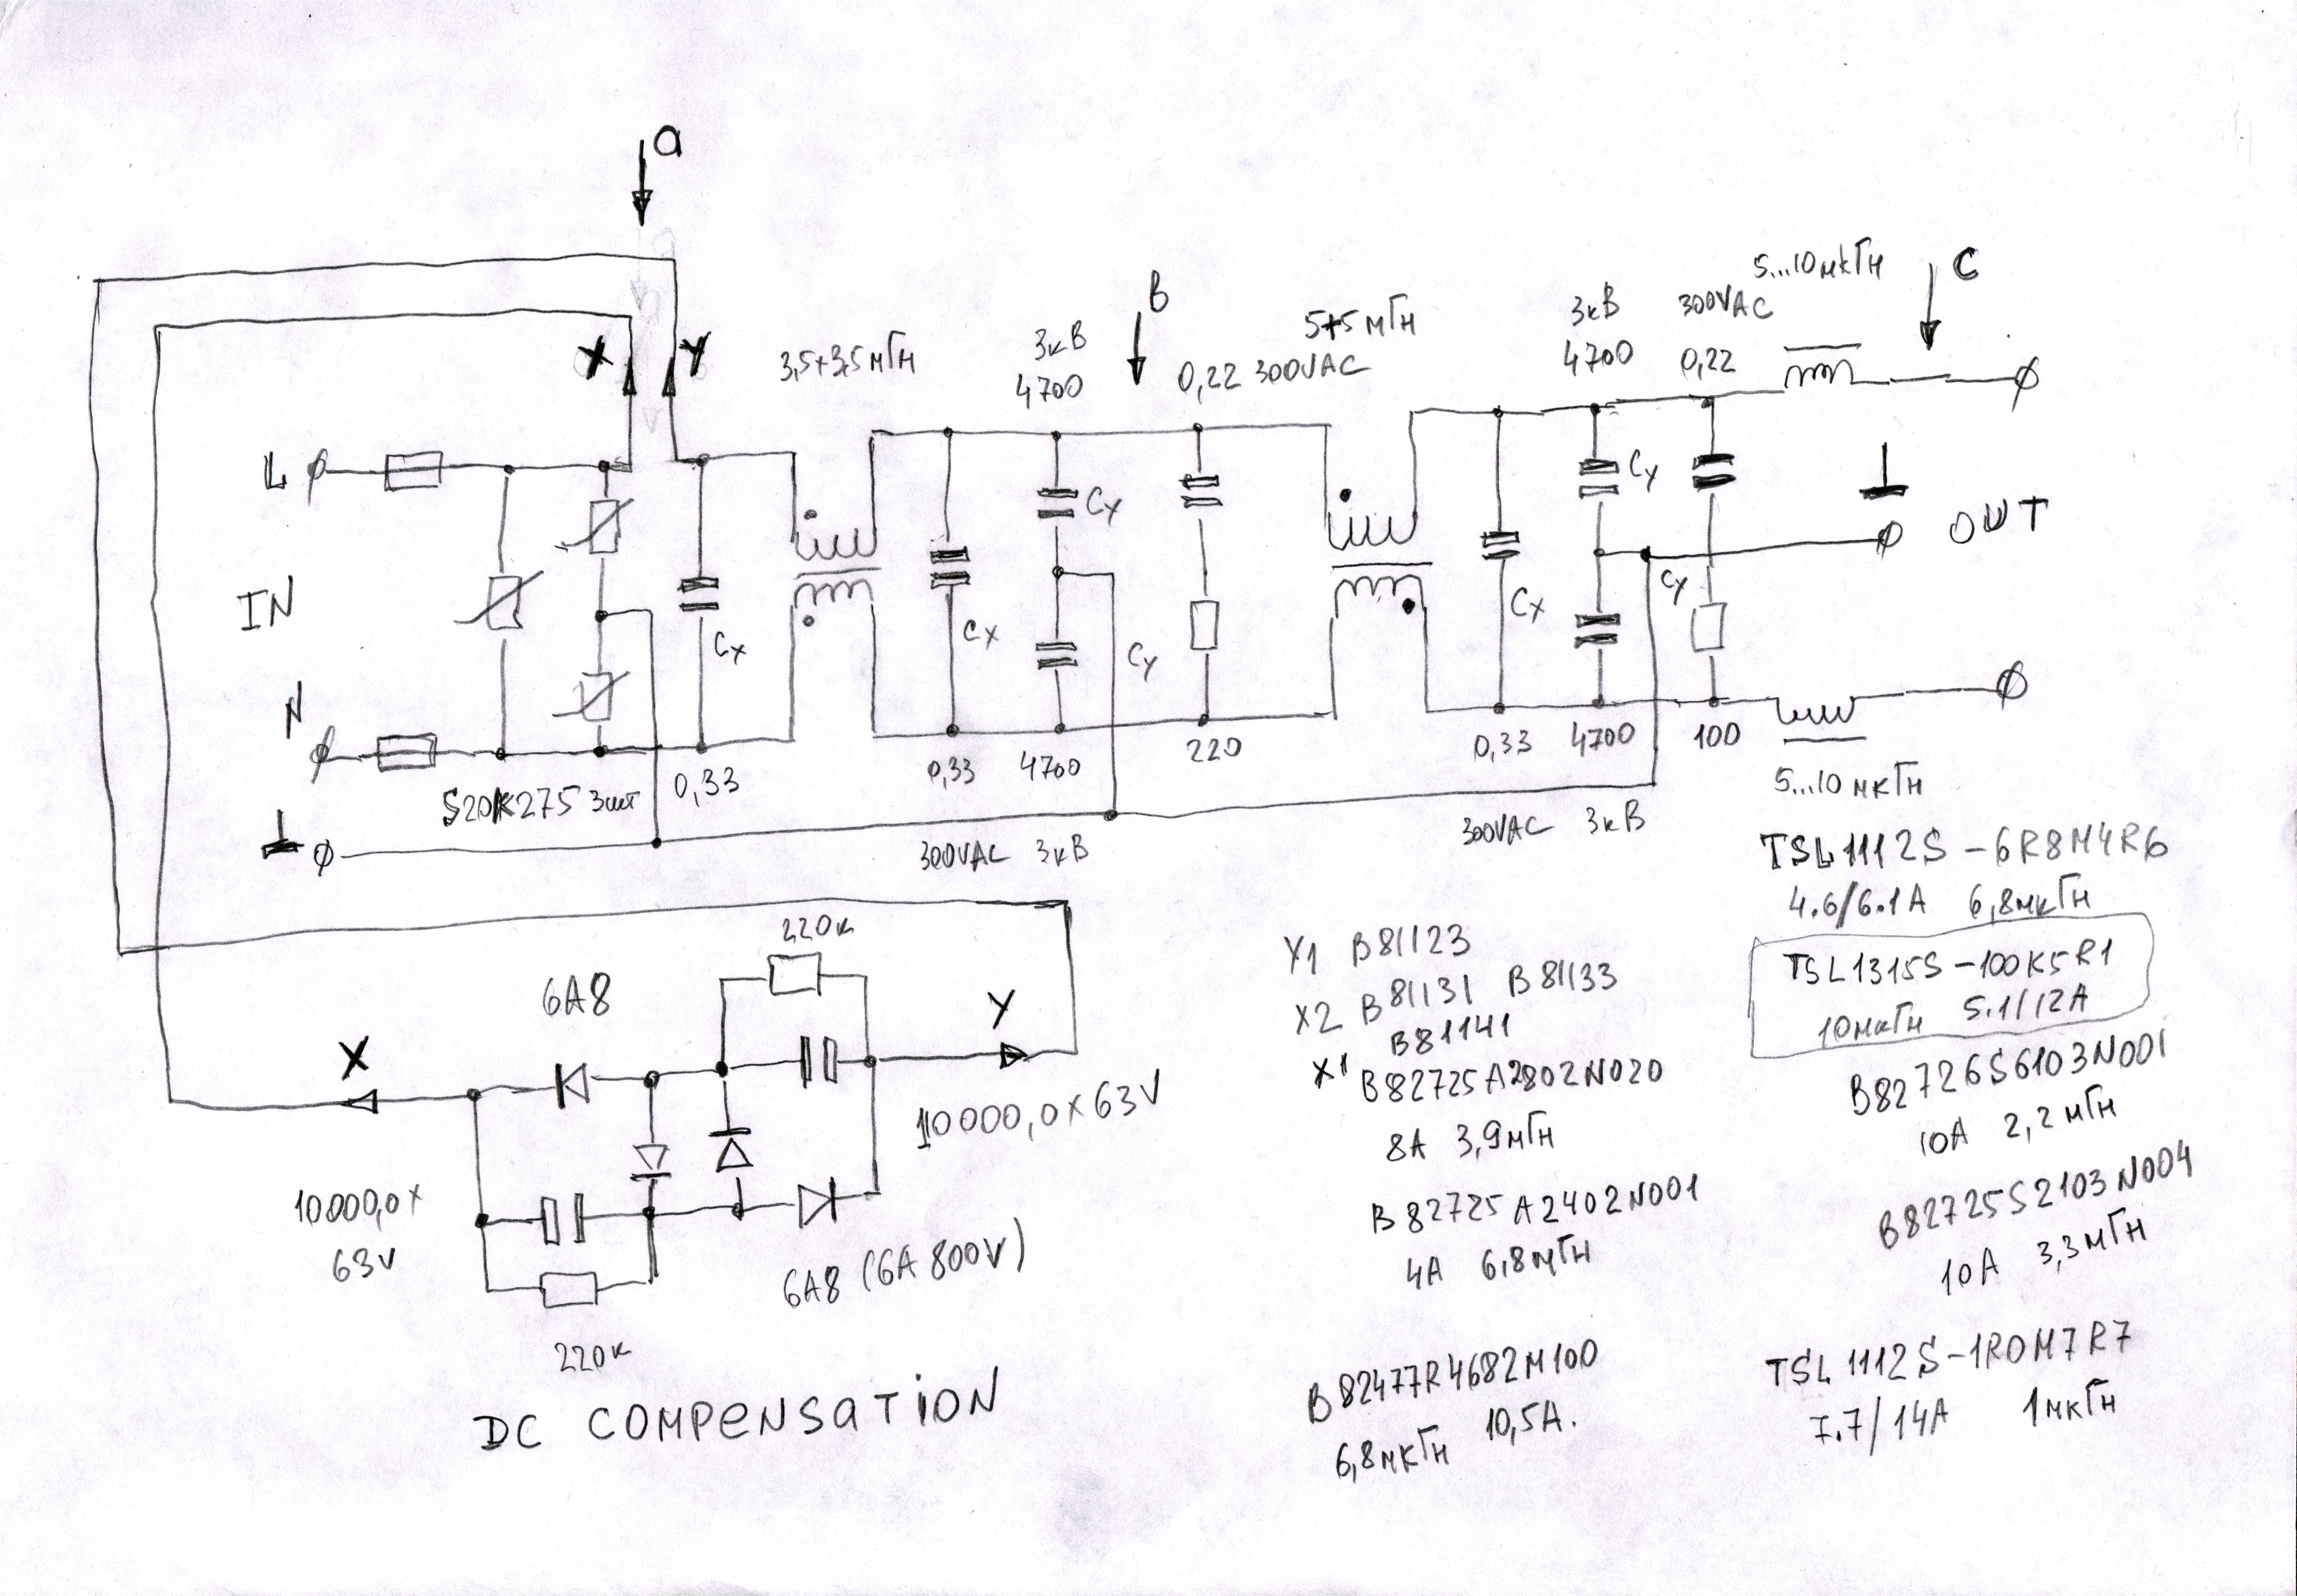 a
B
C
5...10мкГн
3кВ
4700
300VAC
0,22
5+5мГн
3кВ
4700
0,22 300VAC
3,5+3,5мГн
X
Y
L
IN
N
Cx
Cx
Cy
Cy
Cx
Cy
Cy
OUT
S20K275 3шт
0,33
0,33
4700
220
0,33
4700
100
5...10 мкГн
300VAC 3кВ
300VAC 3кВ
220к
6A8
X
Y
10000,0x63V
10000,0x
63V
6A8 (6A 800V)
220к
DC COMPENSATION
Y1 B81123
X2 B81131 B81133
B81141
X1
B82725A2802N020
8A 3,9мГн
B82725A2402N001
4A 6,8мГн
B82477R4682M100
6,8мкГн 10,5A.
TSL1112S-6R8M4R6
4.6/6.1A 6,8мкГн
TSL1315S-100K5R1
10мкГн 5.1/12A
B82726S6103N001
10A 2,2мГн
B82725S2103N004
10A 3,3мГн
TSL1112S-1R0M7R7
7.7/14A 1мкГн